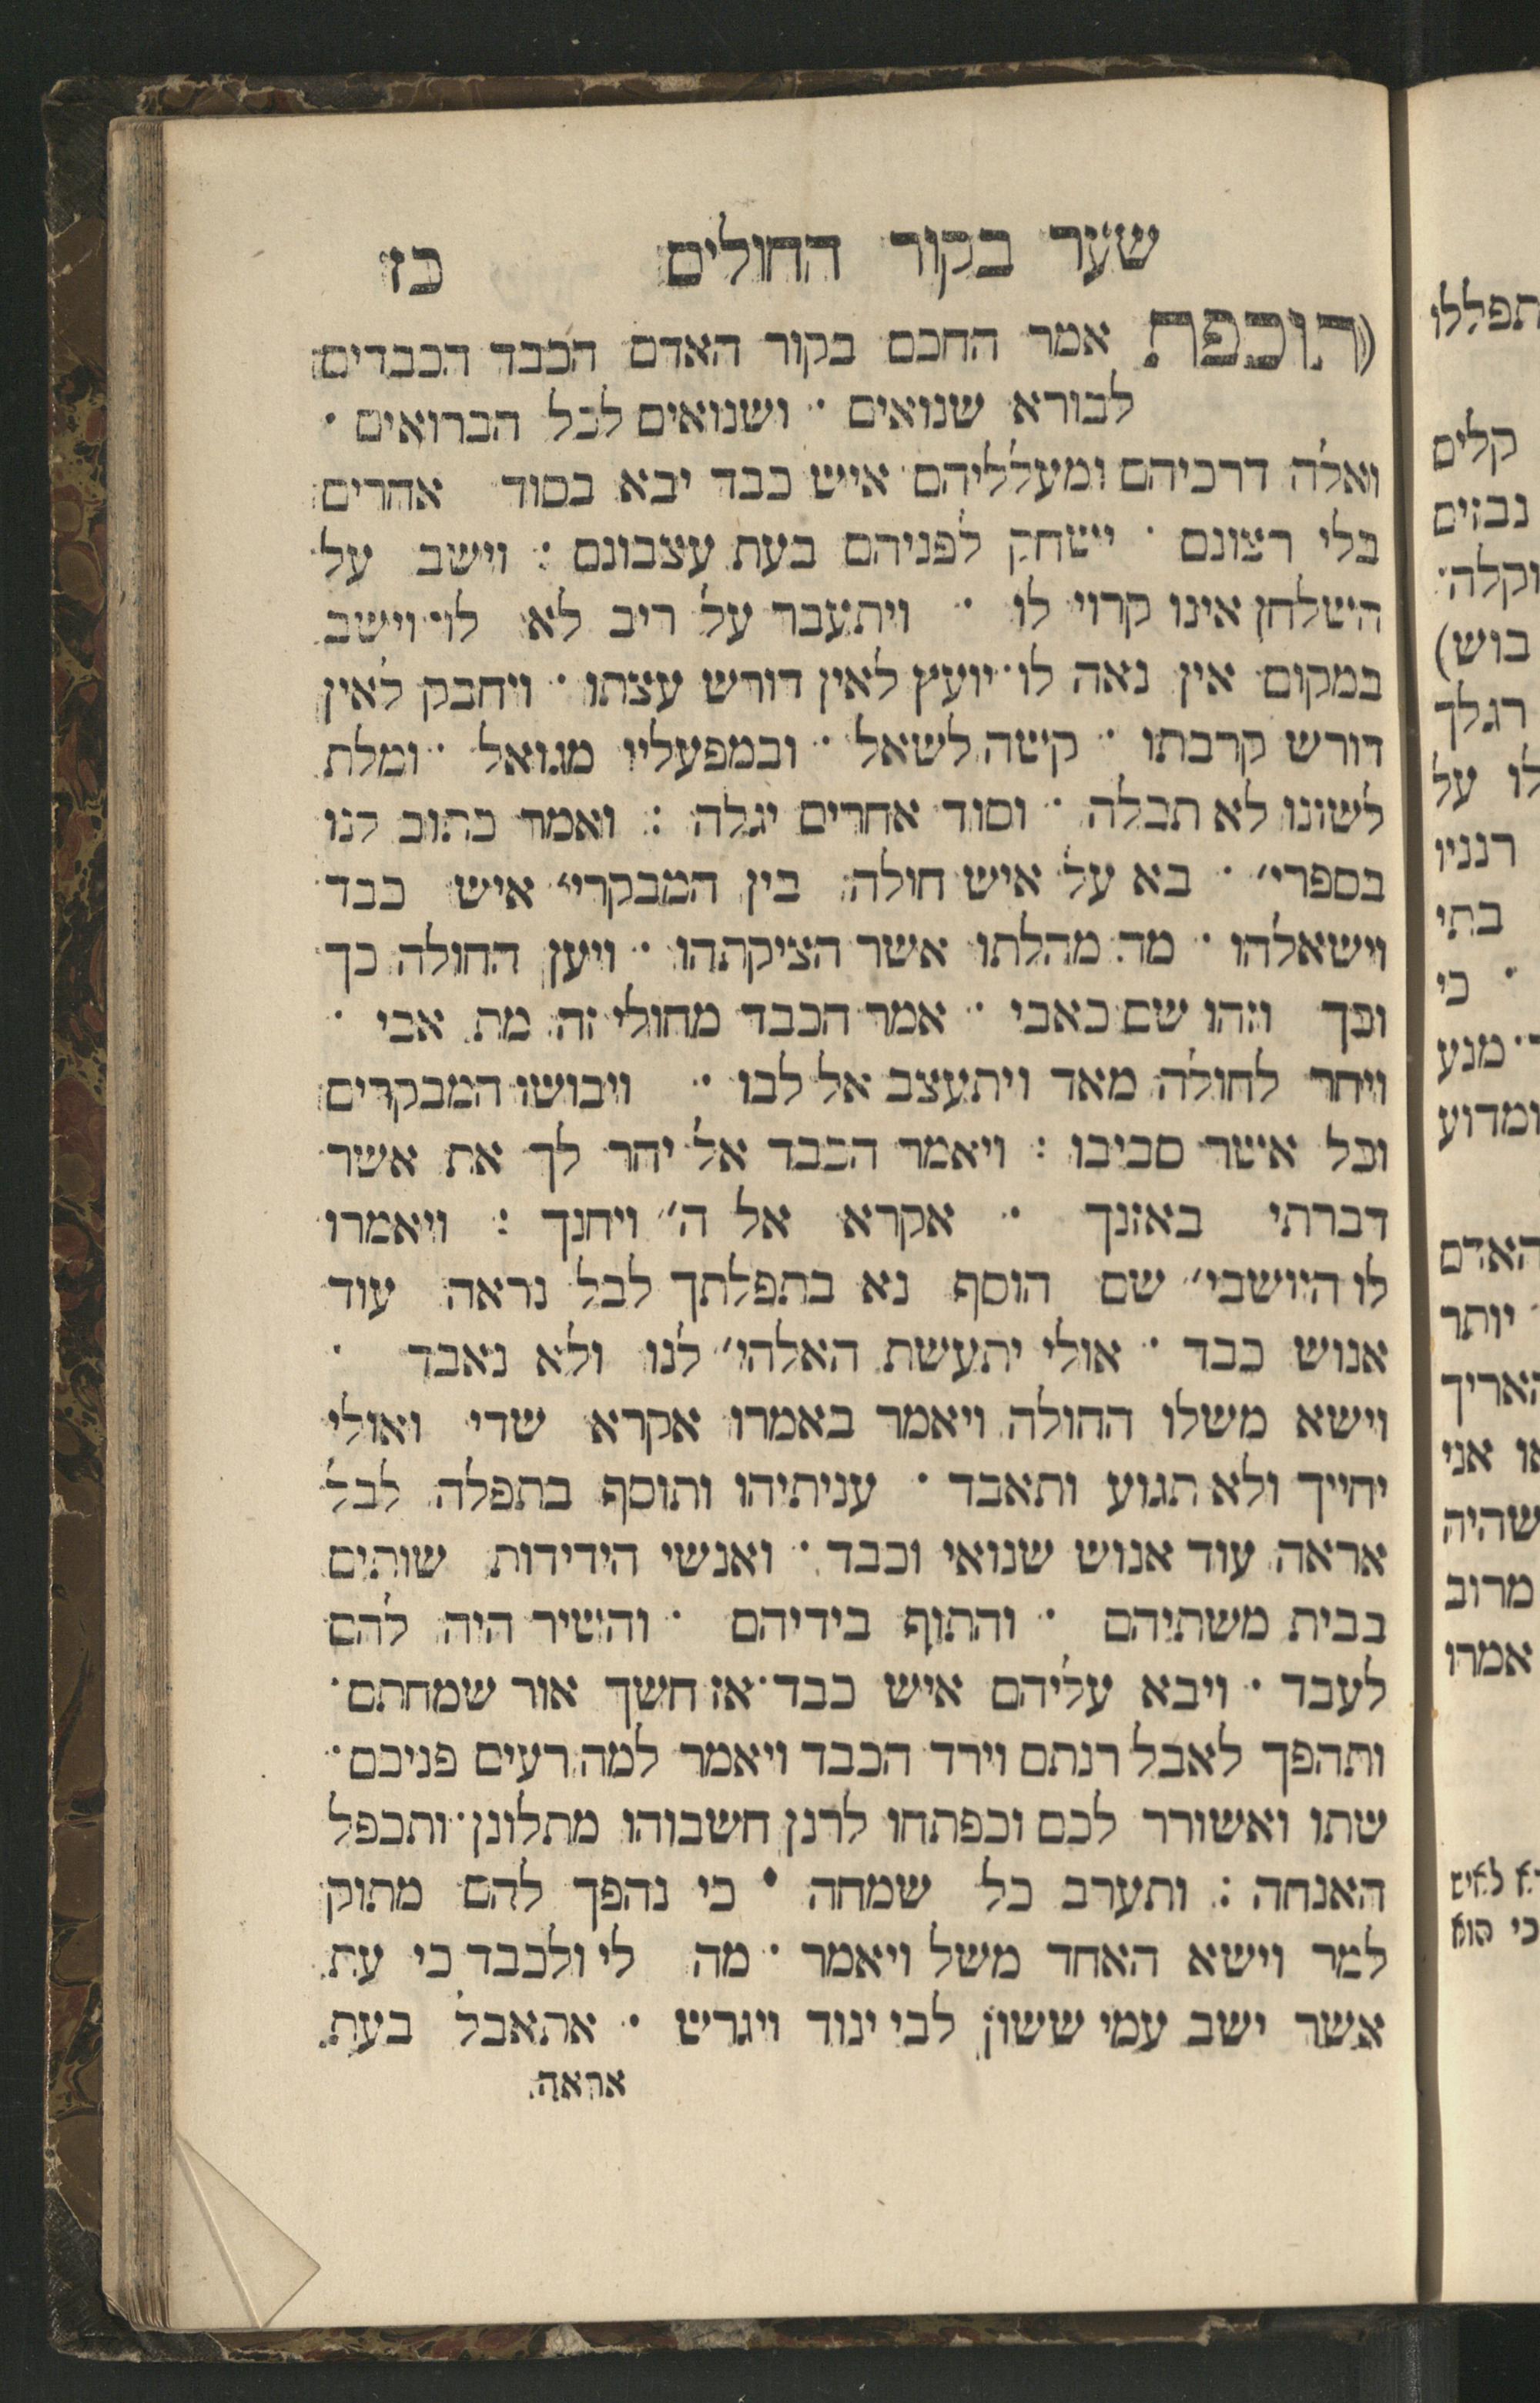 שער בקור החולים כז
(תוכפת אמר החכם בקור האדם הכבד הכבדים
לבורא שנואים · ושנואים לכל הברואים ·
ואלה דרכיהם ומעלליהם איש כבד יבא בסוד אחרים
בלי רצונם · ישחק לפניהם בעת עצבונם : וישב על
השלחן אינו קרוי לו · ויתעבר על ריב לא לו · וישב
במקום אין נאה לו · יועץ לאין דורש עצתו · ויחבק לאין
דורש קרבתו · קשה לשאל · ובמפעליו מגואל · ומלת
לשונו לא תכלה · וסוד אחרים יגלה : ואמר כתוב לנו
בספרי׳ · בא על איש חולה בין המבקרי׳ איש כבד
וישאלהו · מה מחלתו אשר הציקתהו · ויען החולה כך
וכך וזהו שם כאבי · אמר הכבד מחולי זה מת אבי ·
ויחר לחולה מאד ויתעצב אל לבו · ויבושו המבקרים
וכל אשר סביבו : ויאמר הכבד אל יחר לך את אשר
דברתי באזנך · אקרא אל ה׳ ויחנך : ויאמרו
לו היושבי׳ שם הוסף נא בתפלתך לבל נראה עוד
אנוש כבד · אולי יתעשת האלהי׳ לנו ולא נאבד ·
וישא משלו החולה ויאמר באמרו אקרא שדי ואולי
יחייך ולא תגוע ותאבד · עניתיהו ותוסף בתפלה לבל
אראה עוד אנוש שנואי וכבד · ואנשי הידידות שותים
בבית משתיהם · והתוף בידיהם · והשיר היה להם
לעבד · ויבא עליהם איש כבד · אז חשך אור שמחתם ·
ותהפך לאבל רנתם וירד הכבד ויאמר למה רעים פניכם ·
שתו ואשורר לכם וכפתחו לרנן חשבוהו מתלונן · ותכפל
האנחה : ותערב כל שמחה · כי נהפך להם מתוק
למר וישא האחד משל ויאמר · מה לי ולכבד כי עת
אשר ישב עמי ששון לבי ינוד ויגרש · אתאבל בעת
אראה
תפללו
קלים
נבזים
וקלה ·
בוש)
רגלך
לו על
רנניו
בתי
· כי
מנע
ומדוע
האדם
יותר
האריך
או אני
שהיה
מרוב
אמרו
לאיש
כי הוא